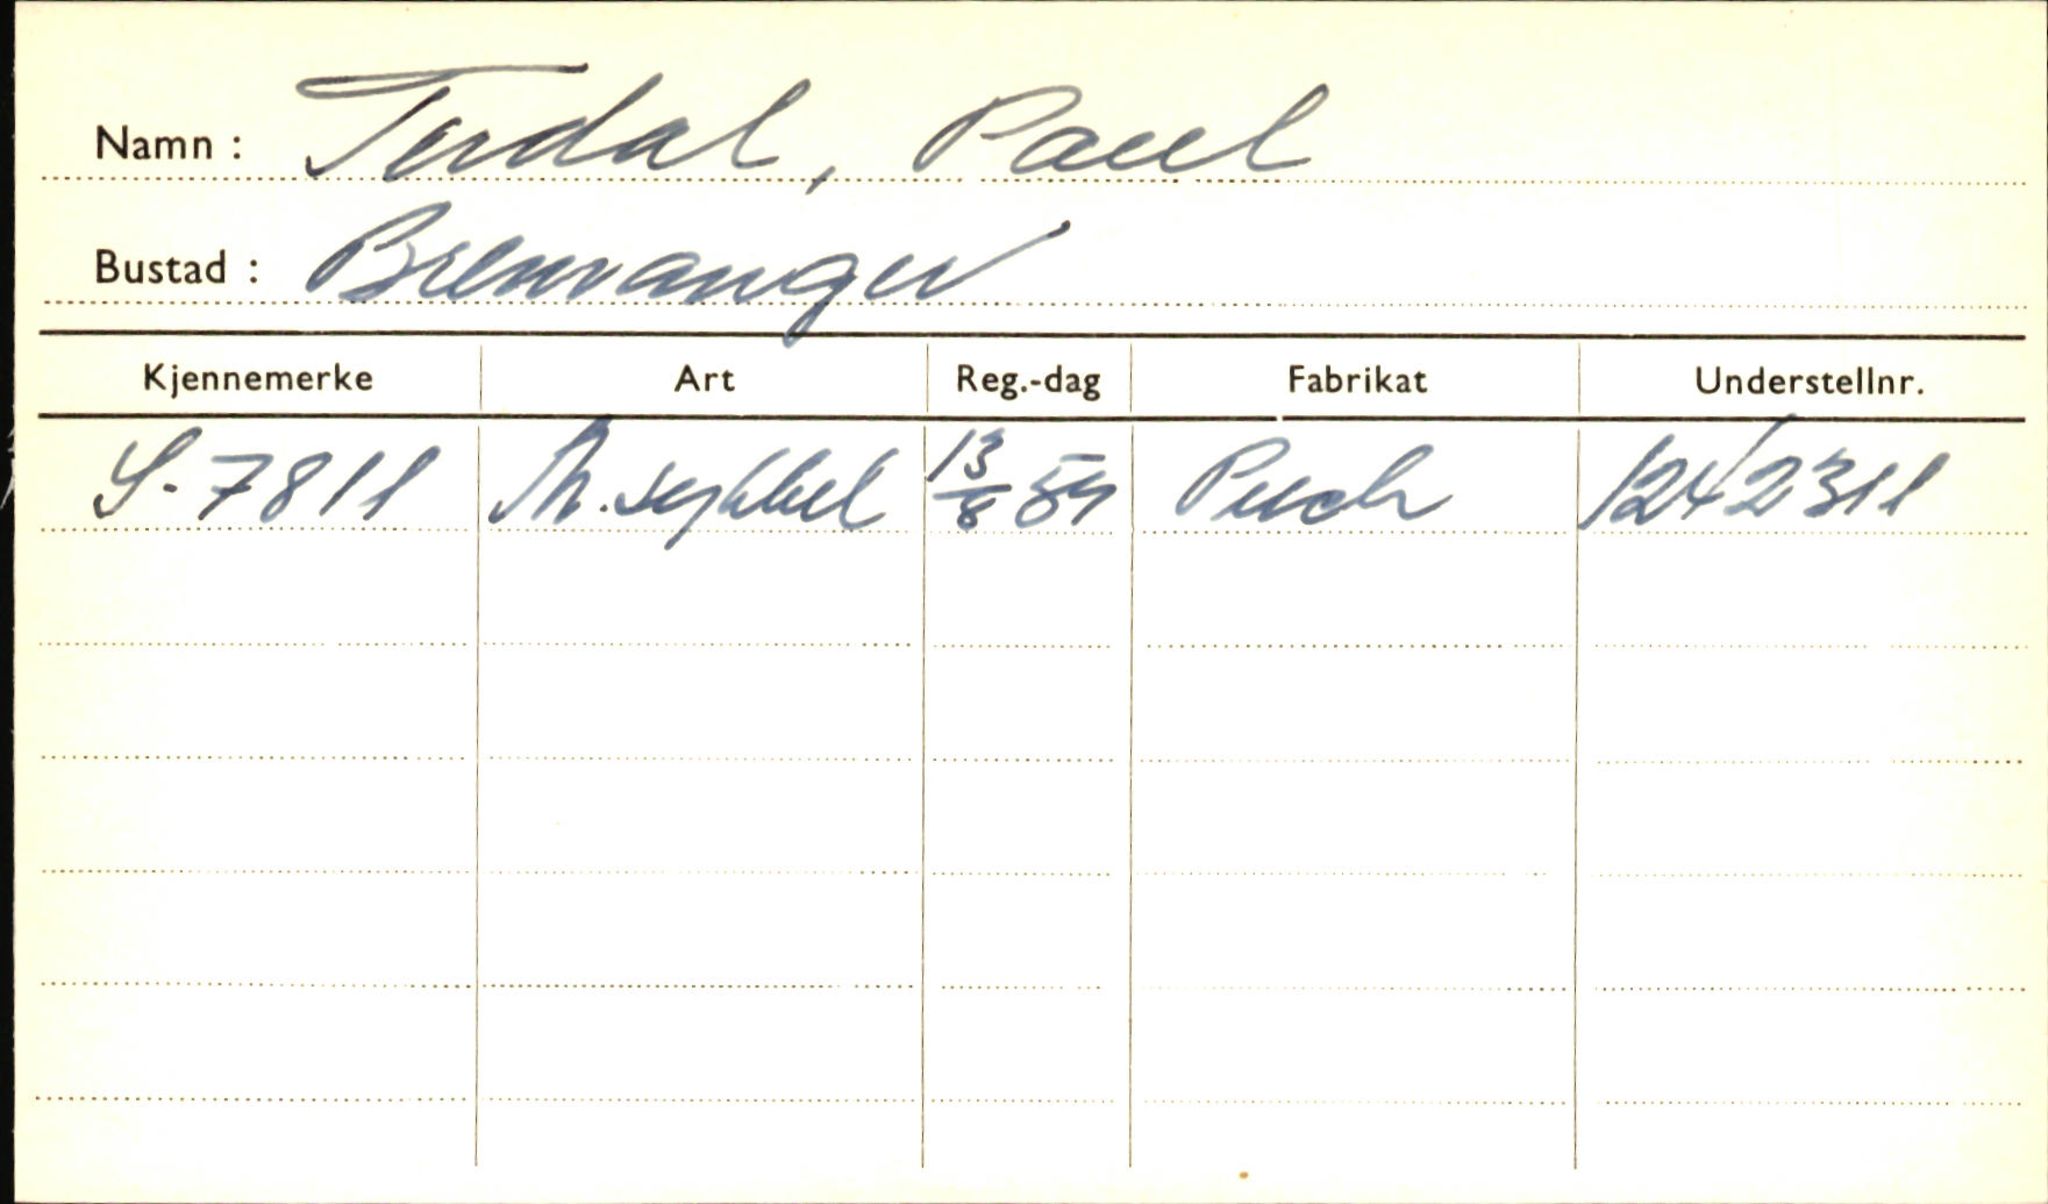 Namn : Terdal, Paul
Bustad : Bremanger
Kjennemerke Art Reg.-dag Fabrikat Understellnr.
S-7811 M.sykkel 13/8 59 Puch 1242311